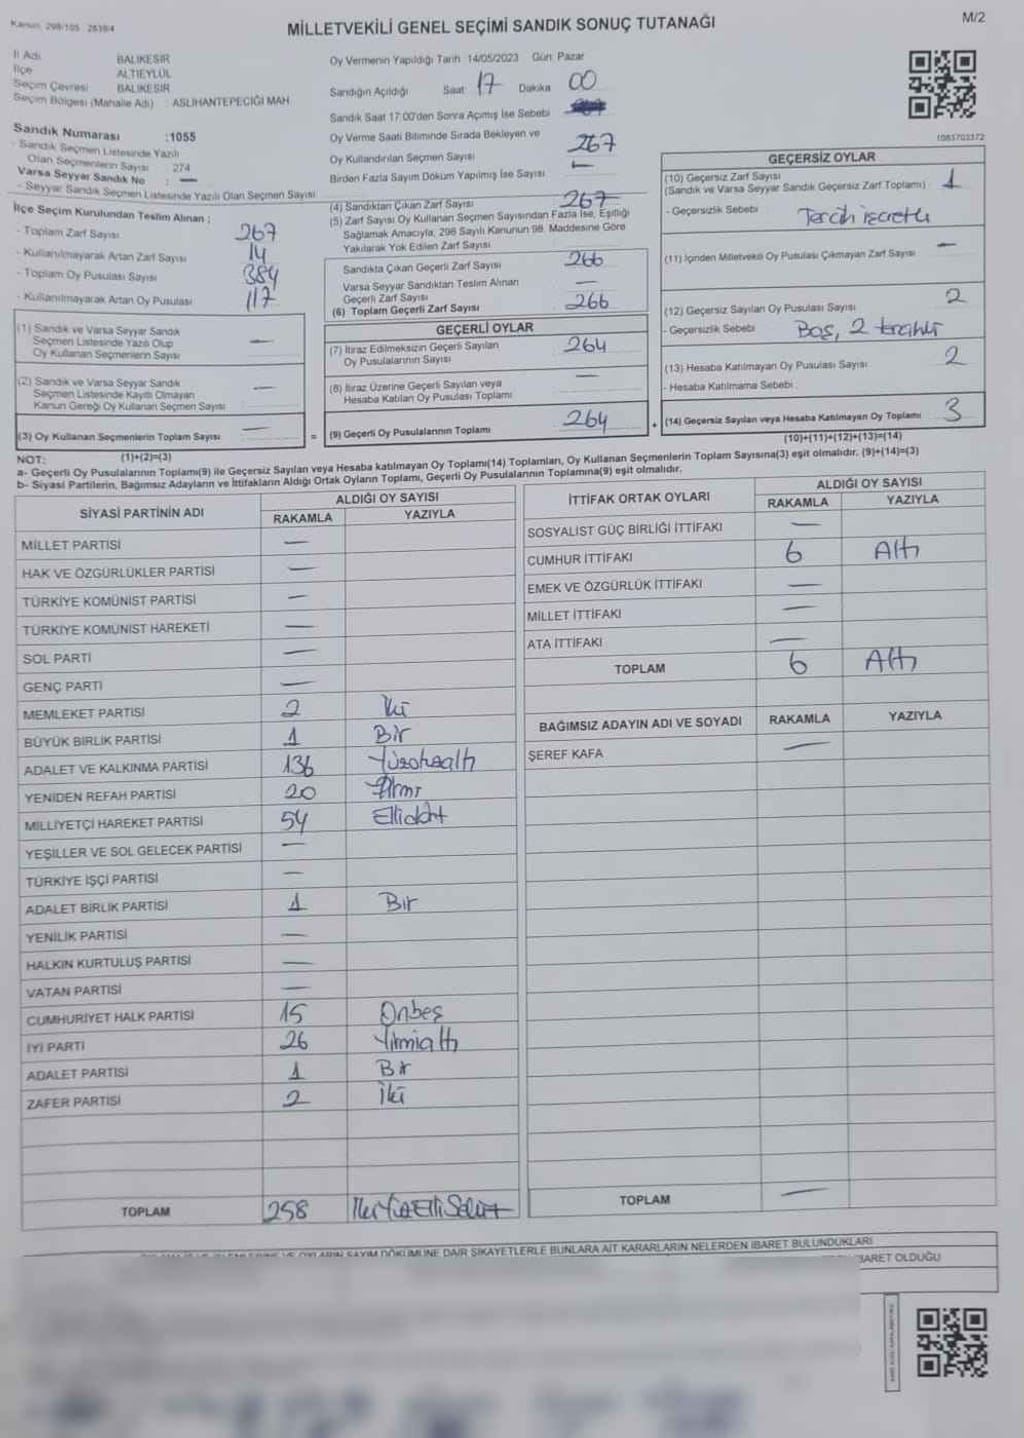 Kanun: 298/105 2839/4
MİLLETVEKİLİ GENEL SEÇİMİ SANDIK SONUÇ TUTANAĞI
M/2
İl Adı BALIKESİR
İlçe ALTIEYLÜL
Seçim Çevresi BALIKESİR
Seçim Bölgesi (Mahalle Adı) : ASLIHANTEPECİĞİ MAH.
Sandık Numarası :1055
- Sandık Seçmen Listesinde Yazılı
Olan Seçmenlerin Sayısı : 274
Varsa Seyyar Sandık No : —
- Seyyar Sandık Seçmen Listesinde Yazılı Olan Seçmen Sayısı
Oy Vermenin Yapıldığı Tarih 14/05/2023 Gün: Pazar
Sandığın Açıldığı Saat 17 Dakika 00
Sandık Saat 17:00'den Sonra Açılmış İse Sebebi
Oy Verme Saati Bitiminde Sırada Bekleyen ve
Oy Kullandırılan Seçmen Sayısı 267
Birden Fazla Sayım Döküm Yapılmış İse Sayısı —
1083703372
İlçe Seçim Kurulundan Teslim Alınan :
- Toplam Zarf Sayısı 267
- Kullanılmayarak Artan Zarf Sayısı 14
- Toplam Oy Pusulası Sayısı 384
- Kullanılmayarak Artan Oy Pusulası 117
(1) Sandık ve Varsa Seyyar Sandık
Seçmen Listesinde Yazılı Olup
Oy Kullanan Seçmenlerin Sayısı —
(2) Sandık ve Varsa Seyyar Sandık
Seçmen Listesinde Kayıtlı Olmayan
Kanun Gereği Oy Kullanan Seçmen Sayısı —
(3) Oy Kullanan Seçmenlerin Toplam Sayısı —
(4) Sandıktan Çıkan Zarf Sayısı 267
(5) Zarf Sayısı Oy Kullanan Seçmen Sayısından Fazla İse, Eşitliği
Sağlamak Amacıyla, 298 Sayılı Kanunun 98. Maddesine Göre
Yakılarak Yok Edilen Zarf Sayısı
Sandıkta Çıkan Geçerli Zarf Sayısı 266
Varsa Seyyar Sandıktan Teslim Alınan
Geçerli Zarf Sayısı —
(6) Toplam Geçerli Zarf Sayısı 266
GEÇERLİ OYLAR
(7) İtiraz Edilmeksizin Geçerli Sayılan
Oy Pusulalarının Sayısı 264
(8) İtiraz Üzerine Geçerli Sayılan veya
Hesaba Katılan Oy Pusulası Toplamı —
= (9) Geçerli Oy Pusulalarının Toplamı 264
GEÇERSİZ OYLAR
(10) Geçersiz Zarf Sayısı
(Sandık ve Varsa Seyyar Sandık Geçersiz Zarf Toplamı) 1
- Geçersizlik Sebebi Tercih işaretli
(11) İçinden Milletvekili Oy Pusulası Çıkmayan Zarf Sayısı —
(12) Geçersiz Sayılan Oy Pusulası Sayısı 2
- Geçersizlik Sebebi Boş, 2 tercihli
(13) Hesaba Katılmayan Oy Pusulası Sayısı 2
- Hesaba Katılmama Sebebi :
+ (14) Geçersiz Sayılan veya Hesaba Katılmayan Oy Toplamı 3
NOT: (1)+(2)=(3)
(10)+(11)+(12)+(13)=(14)
a- Geçerli Oy Pusulalarının Toplamı(9) ile Geçersiz Sayılan veya Hesaba katılmayan Oy Toplamı(14) Toplamları, Oy Kullanan Seçmenlerin Toplam Sayısına(3) eşit olmalıdır. (9)+(14)=(3)
b- Siyasi Partilerin, Bağımsız Adayların ve İttifakların Aldığı Ortak Oyların Toplamı, Geçerli Oy Pusulalarının Toplamına(9) eşit olmalıdır.
SİYASİ PARTİNİN ADI ALDIĞI OY SAYISI
RAKAMLA YAZIYLA
MİLLET PARTİSİ —
HAK VE ÖZGÜRLÜKLER PARTİSİ —
TÜRKİYE KOMÜNİST PARTİSİ —
TÜRKİYE KOMÜNİST HAREKETİ —
SOL PARTİ —
GENÇ PARTİ —
MEMLEKET PARTİSİ 2 İki
BÜYÜK BİRLİK PARTİSİ 1 Bir
ADALET VE KALKINMA PARTİSİ 136 Yüzotuzaltı
YENİDEN REFAH PARTİSİ 20 Yirmi
MİLLİYETÇİ HAREKET PARTİSİ 54 Ellidört
YEŞİLLER VE SOL GELECEK PARTİSİ —
TÜRKİYE İŞÇİ PARTİSİ —
ADALET BİRLİK PARTİSİ 1 Bir
YENİLİK PARTİSİ —
HALKIN KURTULUŞ PARTİSİ —
VATAN PARTİSİ —
CUMHURİYET HALK PARTİSİ 15 Onbeş
İYİ PARTİ 26 Yirmialtı
ADALET PARTİSİ 1 Bir
ZAFER PARTİSİ 2 İki
TOPLAM 258 İkiYüzElliSekiz
İTTİFAK ORTAK OYLARI ALDIĞI OY SAYISI
RAKAMLA YAZIYLA
SOSYALİST GÜÇ BİRLİĞİ İTTİFAKI —
CUMHUR İTTİFAKI 6 Altı
EMEK VE ÖZGÜRLÜK İTTİFAKI —
MİLLET İTTİFAKI —
ATA İTTİFAKI —
TOPLAM 6 Altı
BAĞIMSIZ ADAYIN ADI VE SOYADI RAKAMLA YAZIYLA
ŞEREF KAFA —
TOPLAM —
VE OYLARIN SAYIM DÖKÜMÜNE DAİR ŞİKAYETLERLE BUNLARA AİT KARARLARIN NELERDEN İBARET BULUNDUKLARI
İBARET OLDUĞU